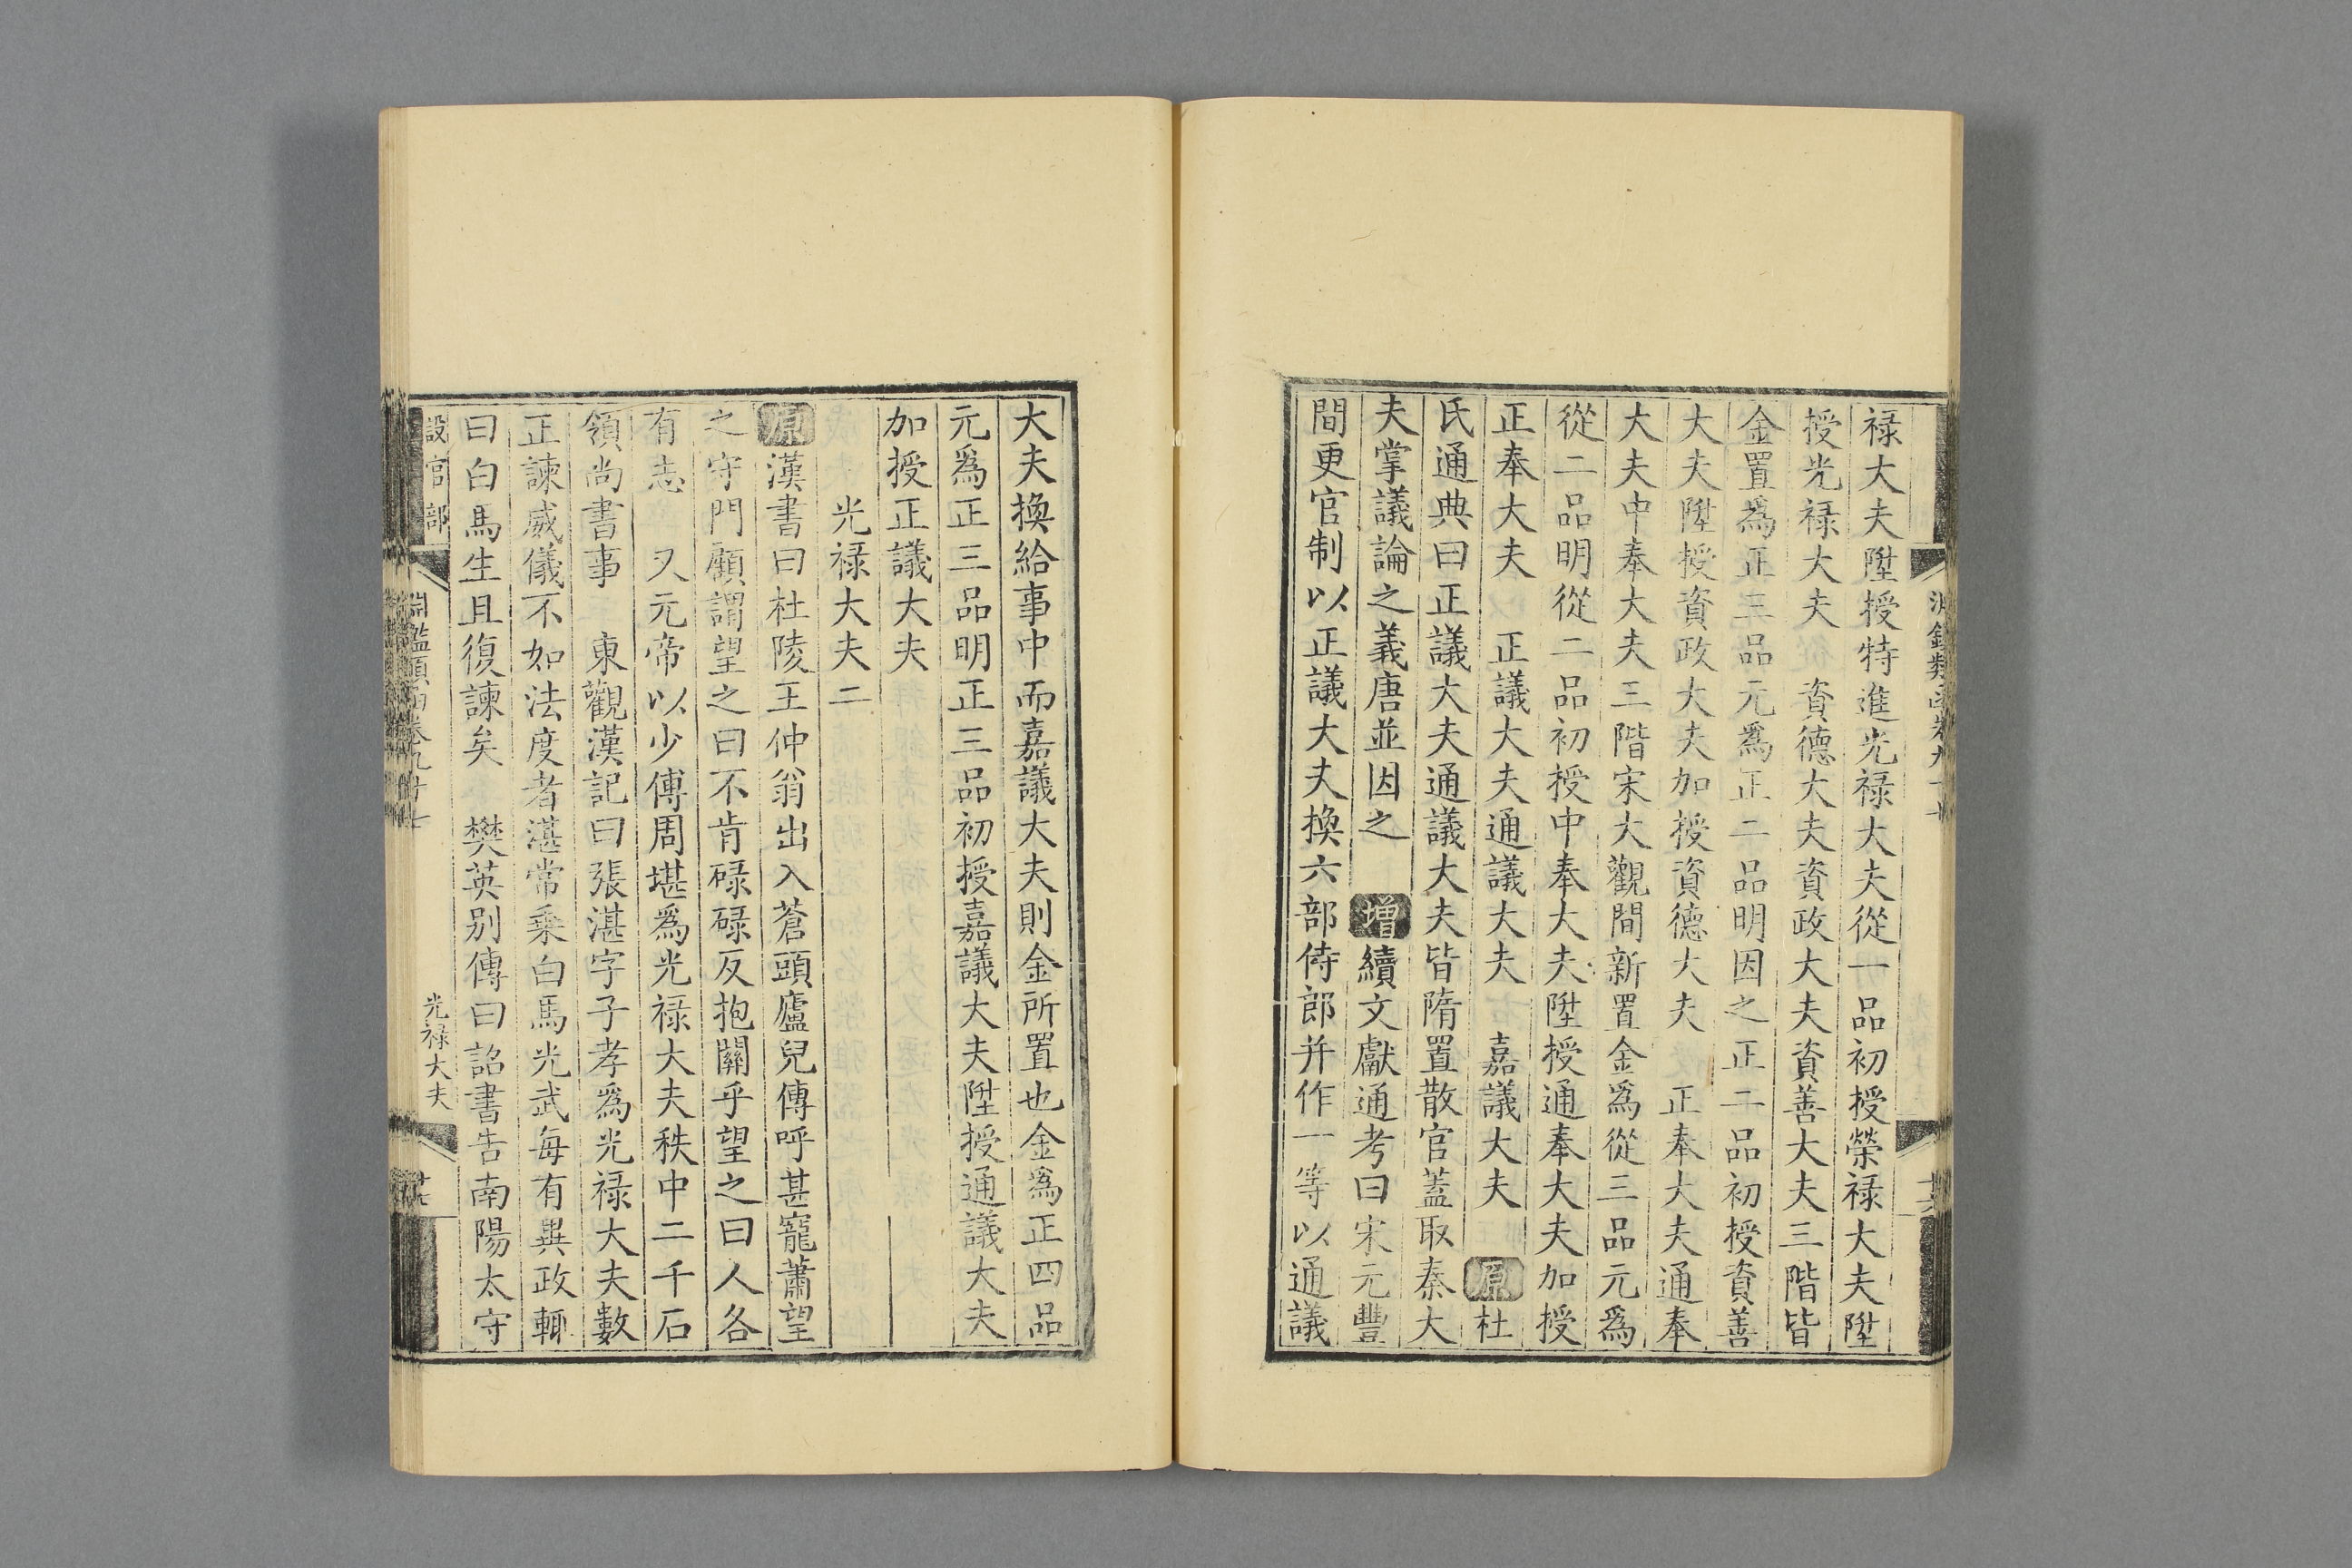 祿大夫陞授特進光祿大夫從一品初授榮祿大夫陞
授光祿大夫　資德大夫資政大夫資善大夫三階皆
金置爲正三品元爲正二品明因之正二品初授資善
大夫陞授資政大夫加授資德大夫　正奉大夫通奉
大夫中奉大夫三階宋大觀間新置金爲從三品元爲
從二品明從二品初授中奉大夫陞授通奉大夫加授
正奉大夫　正議大夫通議大夫　嘉議大夫　原杜
氏通典曰正議大夫通議大夫皆隋置散官蓋取秦大
夫掌議論之義唐並因之　增續文獻通考曰宋元豐
間更官制以正議大夫換六部侍郎并作一等以通議
大夫換給事中而嘉議大夫則金所置也金爲正四品
元爲正三品明正三品初授嘉議大夫陞授通議大夫
加授正議大夫
光祿大夫二
原漢書曰杜陵王仲翁出入蒼頭廬兒傳呼甚寵蕭望
之守門顧謂望之曰不肯碌碌反抱關乎望之曰人各
有志　又元帝以少傅周堪爲光祿大夫秩中二千石
領尚書事　東觀漢記曰張湛字子孝爲光祿大夫數
正諫威儀不如法度者湛常乘白馬光武每有異政輒
曰白馬生且復諫矣　樊英别傳曰詔書告南陽太守
設官部
光祿大夫